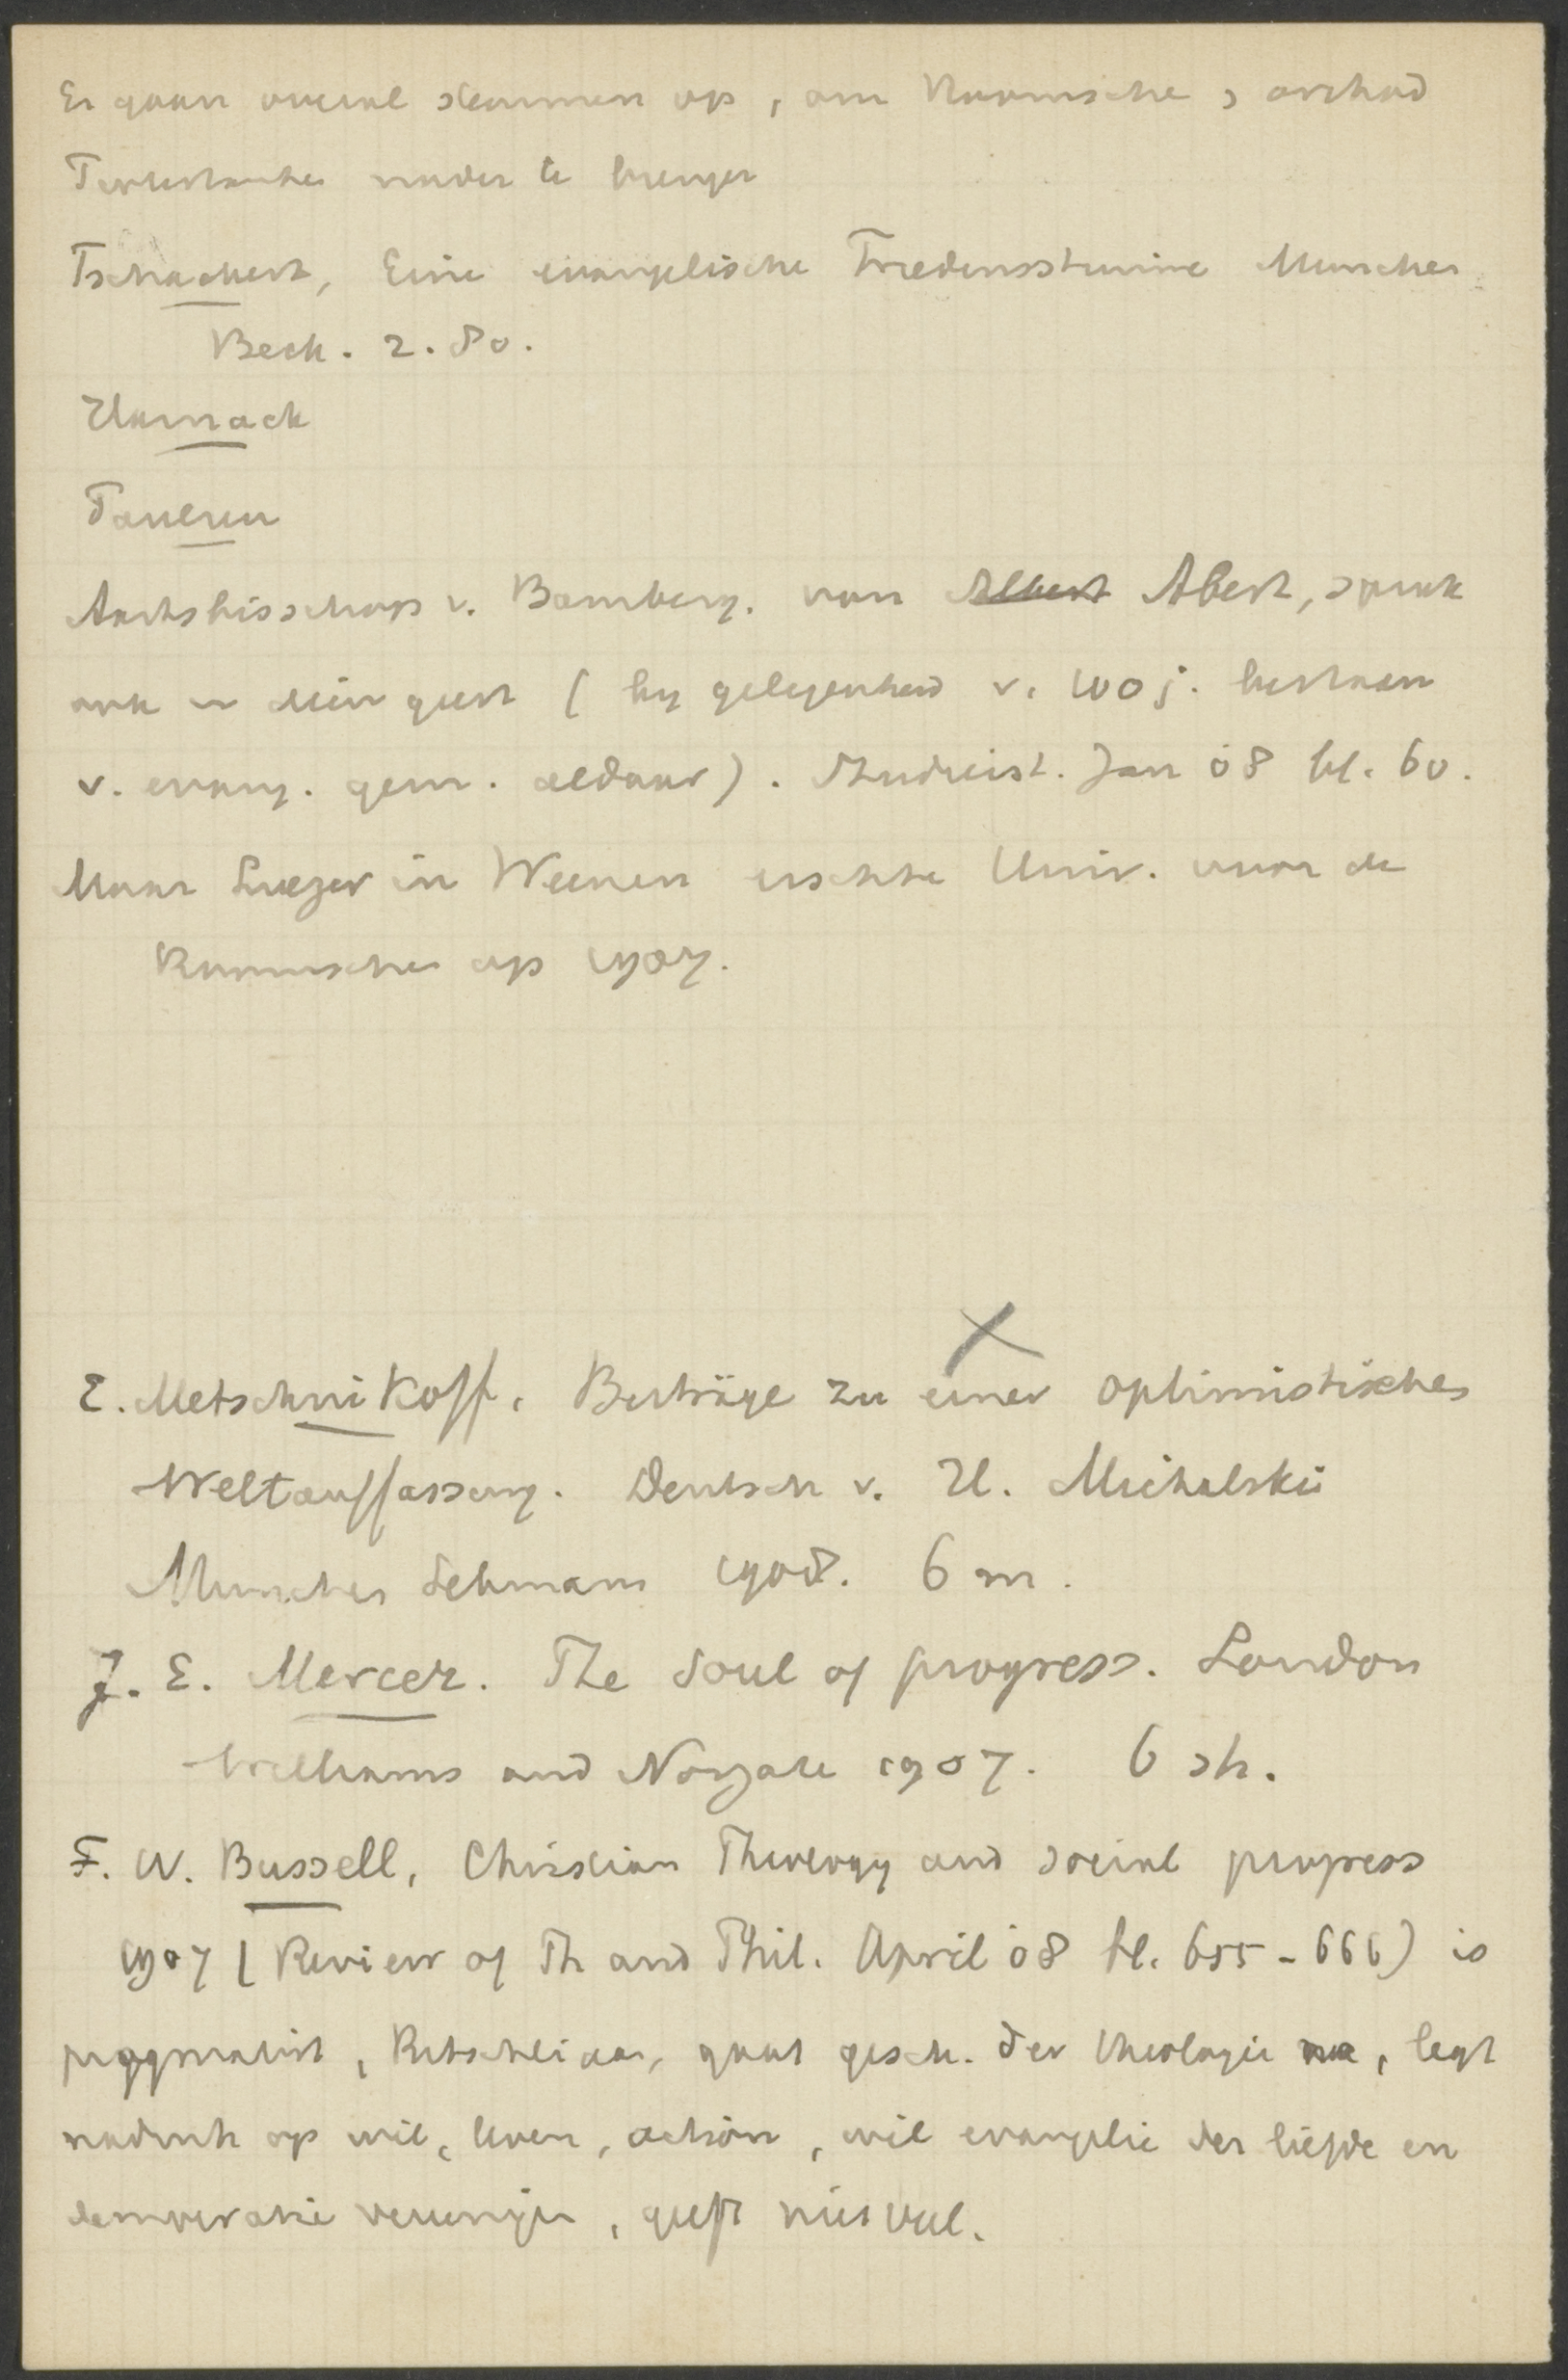 Er gaan overal stemmen op, om Roomsche, orthod
Protestanten nader te brengen
Tschackert, Eine evangelische Friedensstimme Munchen
Beck. 2.80.
Harnack
Aartsbisschop v. Bamberg. von Albert Abert, sprak
ook in dien geest (by gelegenheid v. 100 j. bestaan
v. evang. gem. aldaar). Studierst. Jan 08 bl. 60.
Maar Lueger in Weenen eischte Univ. voor de
Roomschen op 1907.
E. Metschnikoff, Beiträge zu einer optimistischen
Weltauffassung. Deutsch v. H. Michalski
Munchen Lehmann 1908. 6 m.
J. E. Mercer. The Soul of progress. London
Williams and Norgate 1907. 6 sh.
F. W. Bussell, Christian Theology and social progress
1907 (Review of Th and Phil. April 08 bl. 655-666) is
pragmatist, Ritschliaan, gaat gesch. der theologie na, legt
nadruk op wil, leven, action, wil evangelie der liefde en
democratie vereenigen, geeft niet veel.